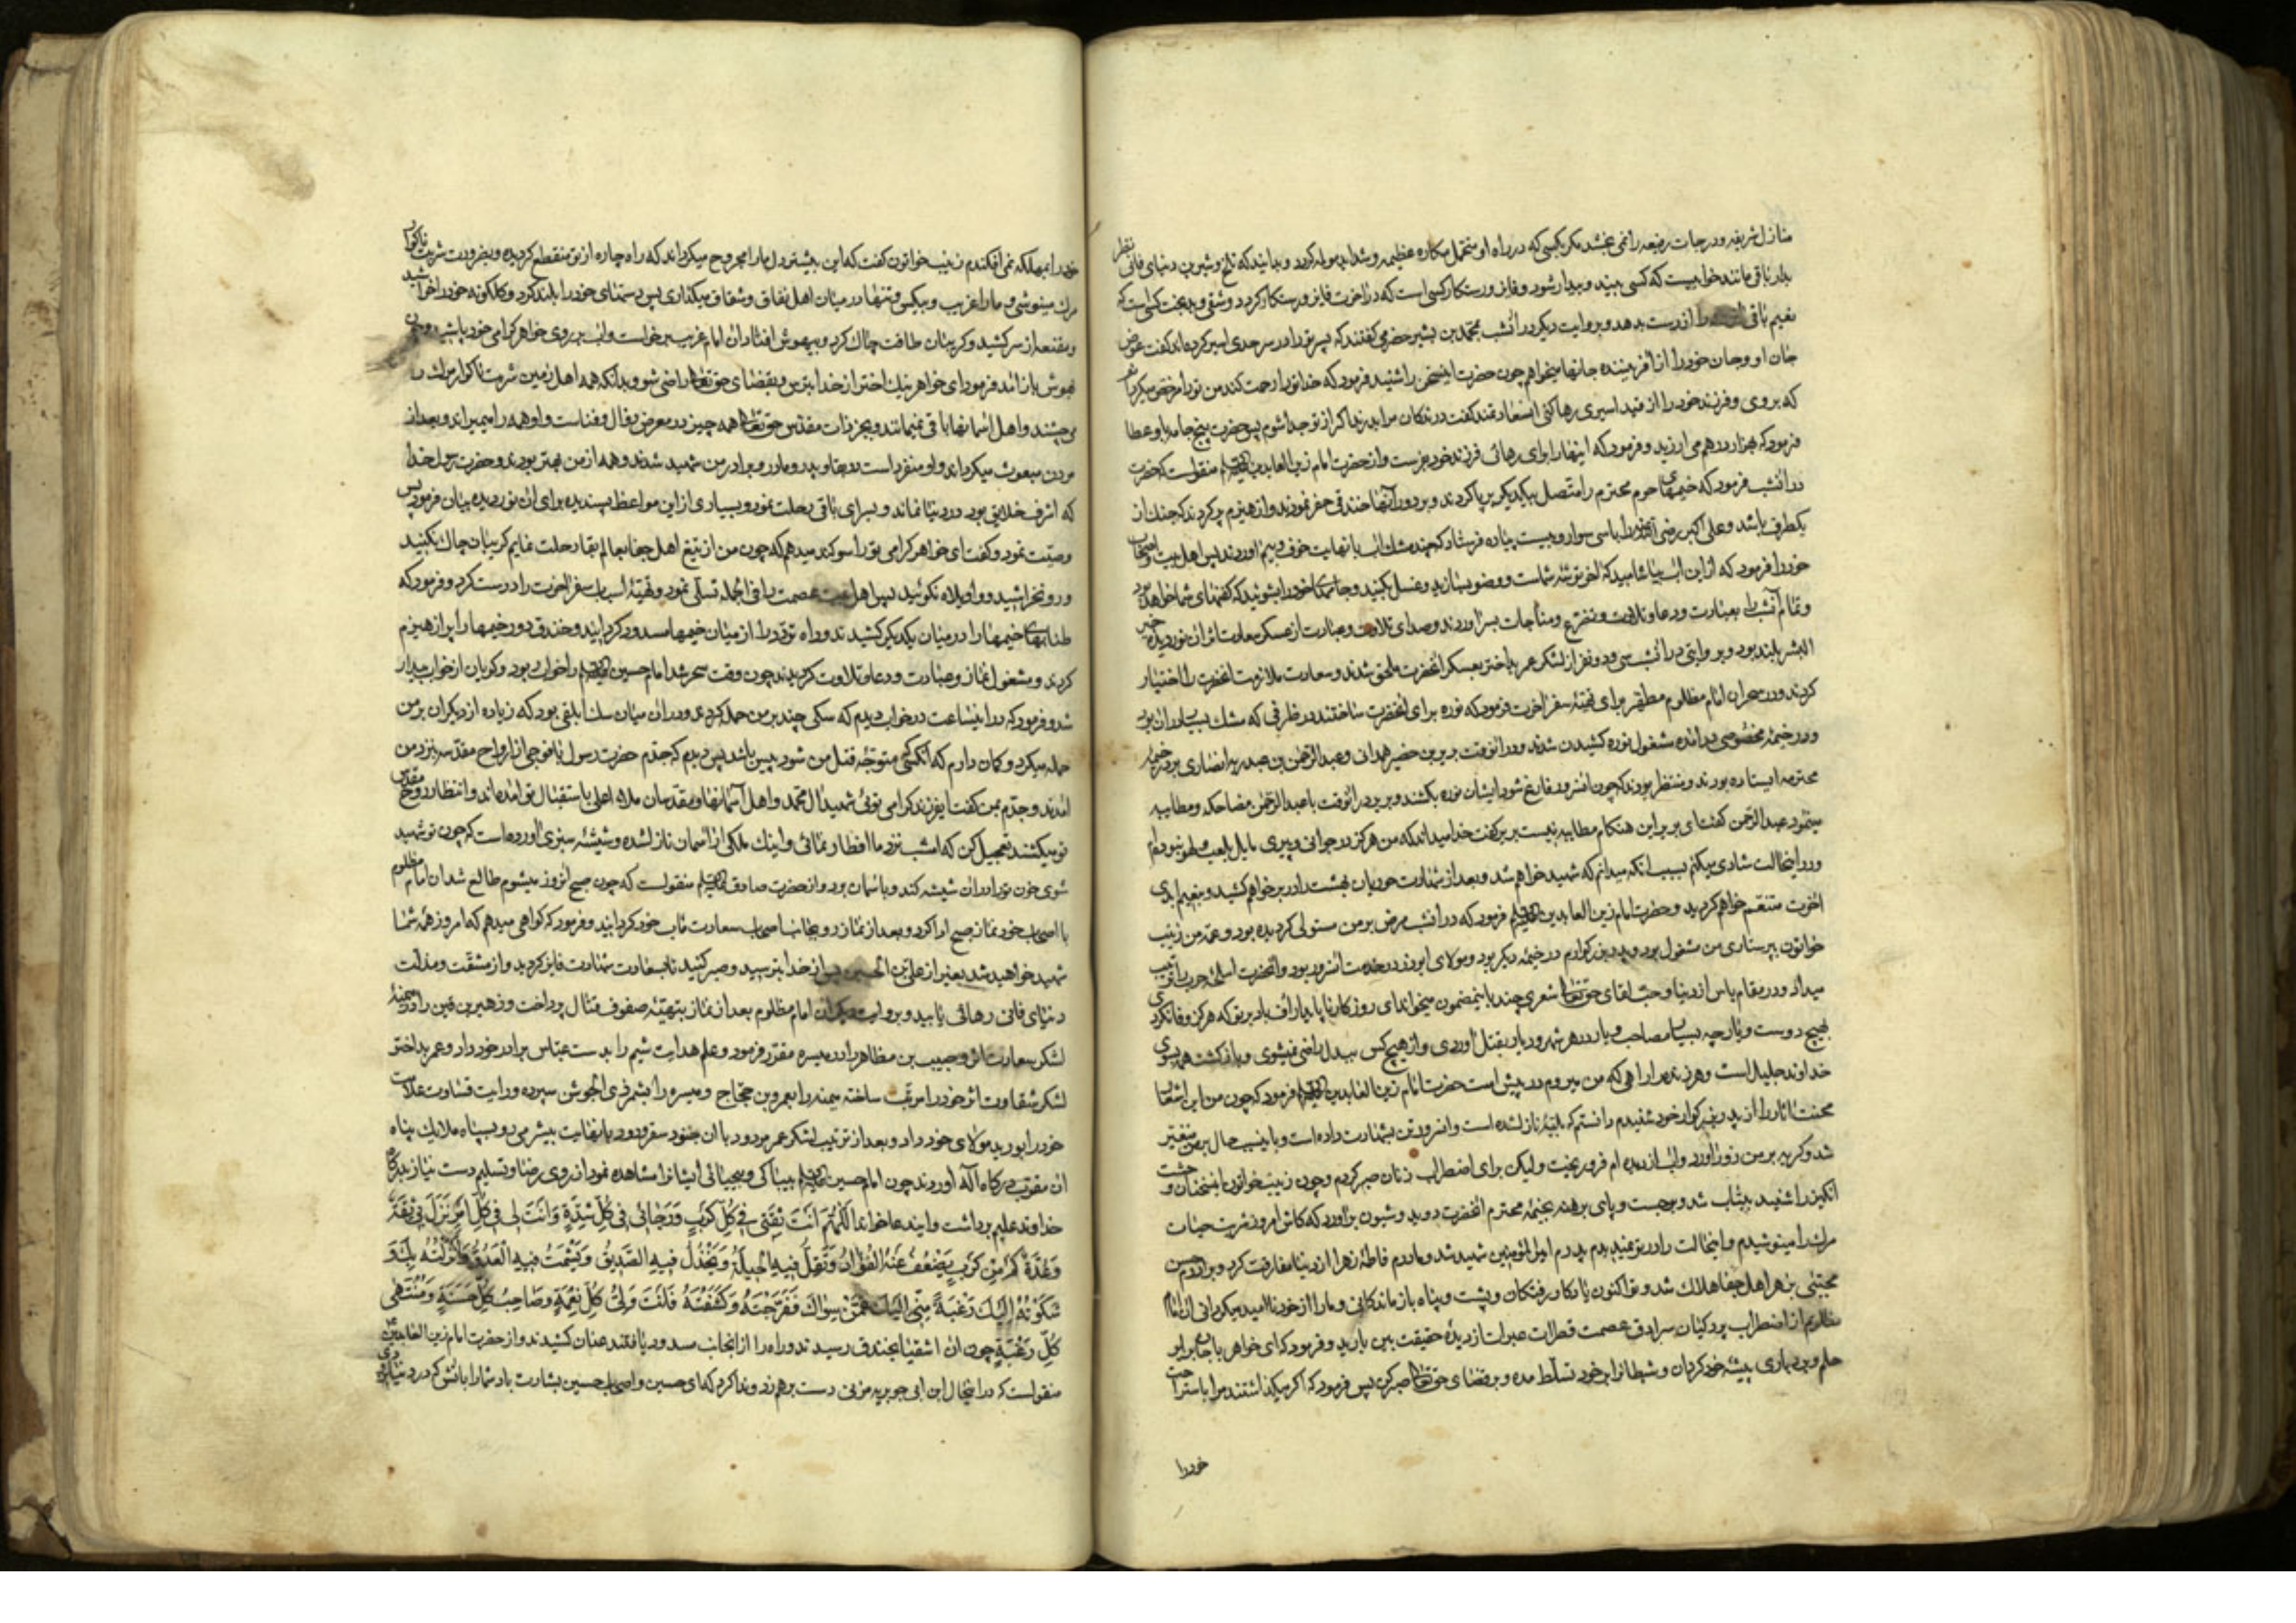 منازل شریفه و درجات رفیعه را نمی بخشد مکر بکسی که در راه او متحمل مکاره عظیمه و شداید مولمه کردد و بدانیند که تلخ و شیرین دنیای فانی نظر
بدار باقی مانند خوابیست که کسی بیند و بیدار شود و فایز و رستکار کسی است که در آخرت فایز و رستکار کردد و شقی و بدبخت کسی است که
نعیم باقی را از دست بدهد و بروایت دیکر در انشب محمد بن بشیر حضرمی کفتند که پسر تو را در سرحد ری اسیر کرده اند کفت عوض
جان او و جان خود را از آفریننده جانها میخواهم چون حضرت اینسخن را شنید فرمود که خدا تو را رحمت کند من تو را مرخص میکردانم
که بروی و فرزند خود را از قید اسیری رها کنی آنسعادتمند کفت درندکان مرا بدرند اکر از تو جدا شوم پس حضرت پنج جامه باو عطا
فرمود که بهزار درهم می ارزید و فرمود که اینها را برای رهائی فرزند خود بفرست و از حضرت امام زین العابدین علیه السلم منقولست که حضرت
در انشب فرمود که خیمهای حرم محترم را متصل بیکدیکر برپا کردند و بر دور آنها خندقی حفر نمودند و از هیزم پر کردند که جنک از
یکطرف باشد و علی اکبر را با سی سوار و بیست پیاده فرستاد که چند مشک آب با نهایت خوف و بیم آوردند پس اهل بیت و اصحاب
خود را فرمود که از این آب بیاشامید که آخر توشه شماست و وضو بسازید و غسل بکنید و جامهای خود را بشوئید که کفنهای شما خواهد بود
و تمام آنشب را بعبادت و دعا و تلاوت و تضرع و مناجات بسر آوردند و صدای تلاوت و عبادت از عسکر سعادت اثر آن نور دیده خیر
البشر بلند بود و بروایتی در انشب سی و دو نفر از لشکر عمر بداختر بعسکر آنحضرت ملحق شدند و سعادت ملازمت آنحضرت را اختیار
کردند و در سحر آن امام مظلوم مطهر برای تهیه سفر آخرت فرمود که نوره برای آنحضرت ساختند در ظرفی که مشک بسیار در آن بود
و در خیمه مخصوصی در آمده مشغول نوره کشیدن شدند و در آنوقت بریر بن خضیر همدانی و عبد الرحمن بن عبد ربه انصاری بر در خیمه
محترمه ایستاده بودند و منتظر بودند که چون آنسرور فارغ شود ایشان نوره بکشند و بریر در آنوقت با عبد الرحمن مضاحکه و مطایبه
مینمود عبد الرحمن کفت ای بریر این هنکام مطایبه نیست بریر کفت خدا میداند که من هرکز در جوانی و پیری مایل بلعب و لهو نبوده ام
و در اینحالت شادی میکنم بسبب انکه میدانم که شهید خواهم شد و بعد از شهادت حوریان بهشت را در بر خواهم کشید و بنعیم ابدی
آخرت متنعم خواهم کردید و حضرت امام زین العابدین علیه السلم فرمود که در انشب مرض بر من مستولی کردیده بود و عمه من زینب
خواتون بپرستاری من مشغول بود و پدر بزرکوارم در خیمه دیکر بود و مولای ابوذر در خدمت آنسرور بود و آنحضرت اسلحه حرب را ترتیب
میداد و در مقام یاس از دنیا و حب لقای حق تعالی شعری چند باینمضمون میخواند ای روزکار ناپایدار اف باد بر تو که هرکز وفا نکردی
بهیچ دوست و یار چه بسیار مصاحب و یار در هر شهر و دیار بقتل آوردی و از هیچ کس ببدل راضی نمیشوی و بازکشت همه بسوی
خداوند جلیل است و هر زنده را راهی که من میروم در پیش است حضرت امام زین العابدین علیه السلم فرمود که چون من این اشعار
محنت آثار را از پدر بزرکوار خود شنیدم دانستم که بلیه نازل شده است و آنسرور تن بشهادت داده است و باینسبب حال بر من متغیر
شد و کریه بر من زور آورد و آب از دیده ام فرو ریخت ولیکن برای اضطراب زنان صبر کردم و چون زینب خواتون اینسخنان وحشت
انکیز را شنید بیتاب شد و برجست و پای برهنه بخیمه محترم آنحضرت دوید و شیون برآورد که کاش امروز شربت حیات
مرک را مینوشیدم و اینحالت را در تو نمیدیدم پدرم امیر المؤمنین شهید شد و مادرم فاطمه زهرا از دنیا مفارقت کرد و برادرم حسن
مجتبی بزهر اهل جفا هلاک شد و تو اکنون یادکار رفتکان و پشت و پناه بازماندکانی و ما را از خود ناامید میکردانی آن امام
مظلوم از اضطراب پردکیان سرادق عصمت قطرات عبرات از دیده حقیقت بین بارید و فرمود که ای خواهر با جان برابر
حلم و بردباری پیشه خود کردان و شیطانرا بر خود تسلط مده و بر قضای حق تعالی صبر کن پس فرمود که اکر میکذاشتند مرا باستراحت
خود را
خود را بمهلکه نمی افکندم زینب خواتون کفت که این بیشتر دل ما را مجروح میکرداند که راه چاره از تو منقطع کردیده و بضرورت شربت ناکوار
مرک مینوشی و ما را غریب و بیکس و تنها در میان اهل نفاق و شقاق میکذاری پس دستهای خود را بلند کرد و کلکونه خود را خراشید
و مقنعه از سر کشید و کریبان طاقت چاک کرد و بیهوش افتاد آن امام غریب برخاست و آب بر روی خواهر کرامی خود پاشید و چون
بهوش باز آمد فرمود ای خواهر نیک اختر از خدا بترس و بقضای حق تعالی راضی شو و بدانکه همه اهل زمین شربت ناکوار مرک را
می چشند و اهل آسمانها باقی نمیمانند و بجز ذات مقدس حق تعالی همه چیز در معرض زوال و فناست و او همه را میمیراند و بعد از
مردن مبعوث میکرداند و او منفرد است در بقا و پدر و مادر و برادر من شهید شدند و همه از من بهتر بودند و حضرت رسول خدا
که اشرف خلایق بود در دنیا نماند و بسرای باقی رحلت نمود و بسیاری از این مواعظ پسندیده برای آن نور دیده بیان فرمود پس
وصیت نمود و کفت ای خواهر کرامی تو را سوکند میدهم که چون من از تیغ اهل جفا بعالم بقا رحلت نمایم کریبان چاک نکنید
و رو نخراشید و واویلاه نکوئید پس اهل بیت عصمت را فی الجمله تسلی نمود و تهیه اسباب سفر آخرت را درست کرد و فرمود که
طنابهای خیمها را در میان یکدیکر کشیدند و راه تردد را از میان خیمها مسدود کردانیدند و خندق دور خیمها را پر از هیزم
کردند و مشغول نماز و عبادت و دعا و تلاوت کردیدند چون وقت سحر شد امام حسین علیه السلم را خواب ربود و کریان از خواب بیدار
شد و فرمود که در اینساعت در خواب دیدم که سکی چند بر من حمله کردند و در آن میان سک ابلقی بود که زیاده از دیکران بر من
حمله میکرد و کمان دارم که آنکسی متوجه قتل من شود پیس باشد پس دیدم که جدم حضرت رسول با فوجی از ارواح مقدسه بنزد من
آمدند و جدم بمن کفت ایفرزند کرامی توئی شهید آل محمد و اهل آسمانها و مقدسان ملاء اعلی باستقبال تو آمده اند و انتظار روح مقدس
تو میکشند تعجیل کن که امشب نزد ما افطار نمائی و اینک ملکی از آسمان نازل شده و شیشه سبزی آورده است که چون تو شهید
شوی خون تو را در آن شیشه کند و بآسمان برد و از حضرت صادق علیه السلم منقولست که چون صبح آنروز میشوم طالع شد آن امام مظلوم
با اصحاب خود نماز صبح ادا کرد و بعد از نماز رو بجانب اصحاب سعادت مآب خود کردانید و فرمود که کواهی میدهم که امروز همه شما
شهید خواهید شد بغیر از علی بن الحسین پس از خدا بترسید و صبر کنید تا بسعادت شهادت فایز کردید و از مشقت و مذلت
دنیای فانی رهائی یابید و بروایت دیکر آن امام مظلوم بعد از نماز بتهیه صفوف قتال پرداخت و زهیر بن قین را در میمنه
لشکر سعادت اثر و حبیب بن مظاهر را در میسره مقرر فرمود و علم هدایت شیم را بدست عباس برادر خود داد و عمر بداختر
لشکر شقاوت اثر خود را مرتب ساخته میمنه را بعمرو بن حجاج و میسره را بشمر ذی الجوشن سپرده و رایت قساوت علامت
خود را بورید مولای خود داد و بعد از ترتیب لشکر عمر مردود با آن جنود سقر ورود بانهایت بیشرمی رو بسپاه ملایک پناه
آن مقرب درکاه آله آوردند چون امام حسین علیه السلم بیباکی و بیحیائی ایشانرا مشاهده نمود از روی رضا و تسلیم دست نیاز بدرکاه
خداوند علیم برداشت و ایندعا خواند اَللّٰهُمَّ اَنْتَ ثِقَتی فی کُلِّ کَرْبٍ وَ رَجٰائی فی کُلِّ شِدَّةٍ وَ اَنْتَ لی فی کُلِّ اَمْرٍ نَزَلَ بی ثِقَةٌ
وَ عُدَّةٌ کَمْ مِنْ کَرْبٍ یَضْعُفُ عَنْهُ الْفُؤٰادُ وَ تَقِلُّ فیهِ الْحیلَةُ وَ یَخْذُلُ فیهِ الصَّدیقُ وَ یَشْمَتُ فیهِ الْعَدُوُّ اَنْزَلْتُهُ بِکَ وَ
شَکَوْتُهُ اِلَیْکَ رَغْبَةً مِنّی اِلَیْکَ عَمَّنْ سِوٰاکَ فَفَرَّجْتَهُ وَ کَشَفْتَهُ فَاَنْتَ وَلِیُّ کُلِّ نِعْمَةٍ وَ صٰاحِبُ کُلِّ حَسَنَةٍ وَ مُنْتَهٰی
کُلِّ رَغْبَةٍ چون آن اشقیا بخندق رسیدند و راه را از آنجانب مسدود یافتند عنان کشیدند و از حضرت امام زین العابدین
منقولست که در اینحال ابن ابی جویریه مزنی دست برهم زد و ندا کرد که ای حسین و اصحاب حسین بشارت باد شما را بآتش که در دنیا بزودی